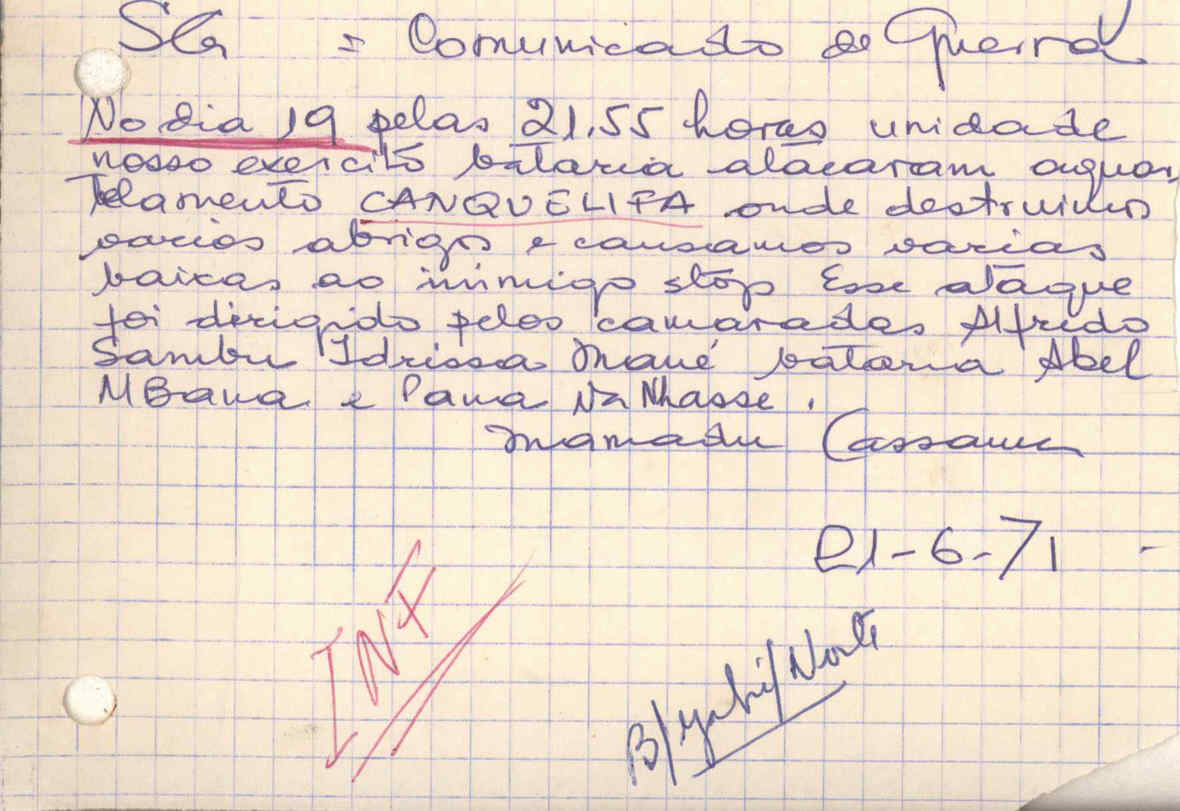 SG = Comunicado de Guerra
No dia 19 pelas 21.55 horas unidade
nosso exercito bataria atacaram aquar
telamento CANQUELIFA onde destruimos
varios abrigos e causamos varias
baixas ao inimigo stop Esse ataque
foi dirigido pelos camaradas Alfredo
Sambu Idrissa Mané bataria Abel
MBana e Pana Na Nhasse.
Mamadu Cassama
21-6-71 -
INF
B/Gabú/Norte